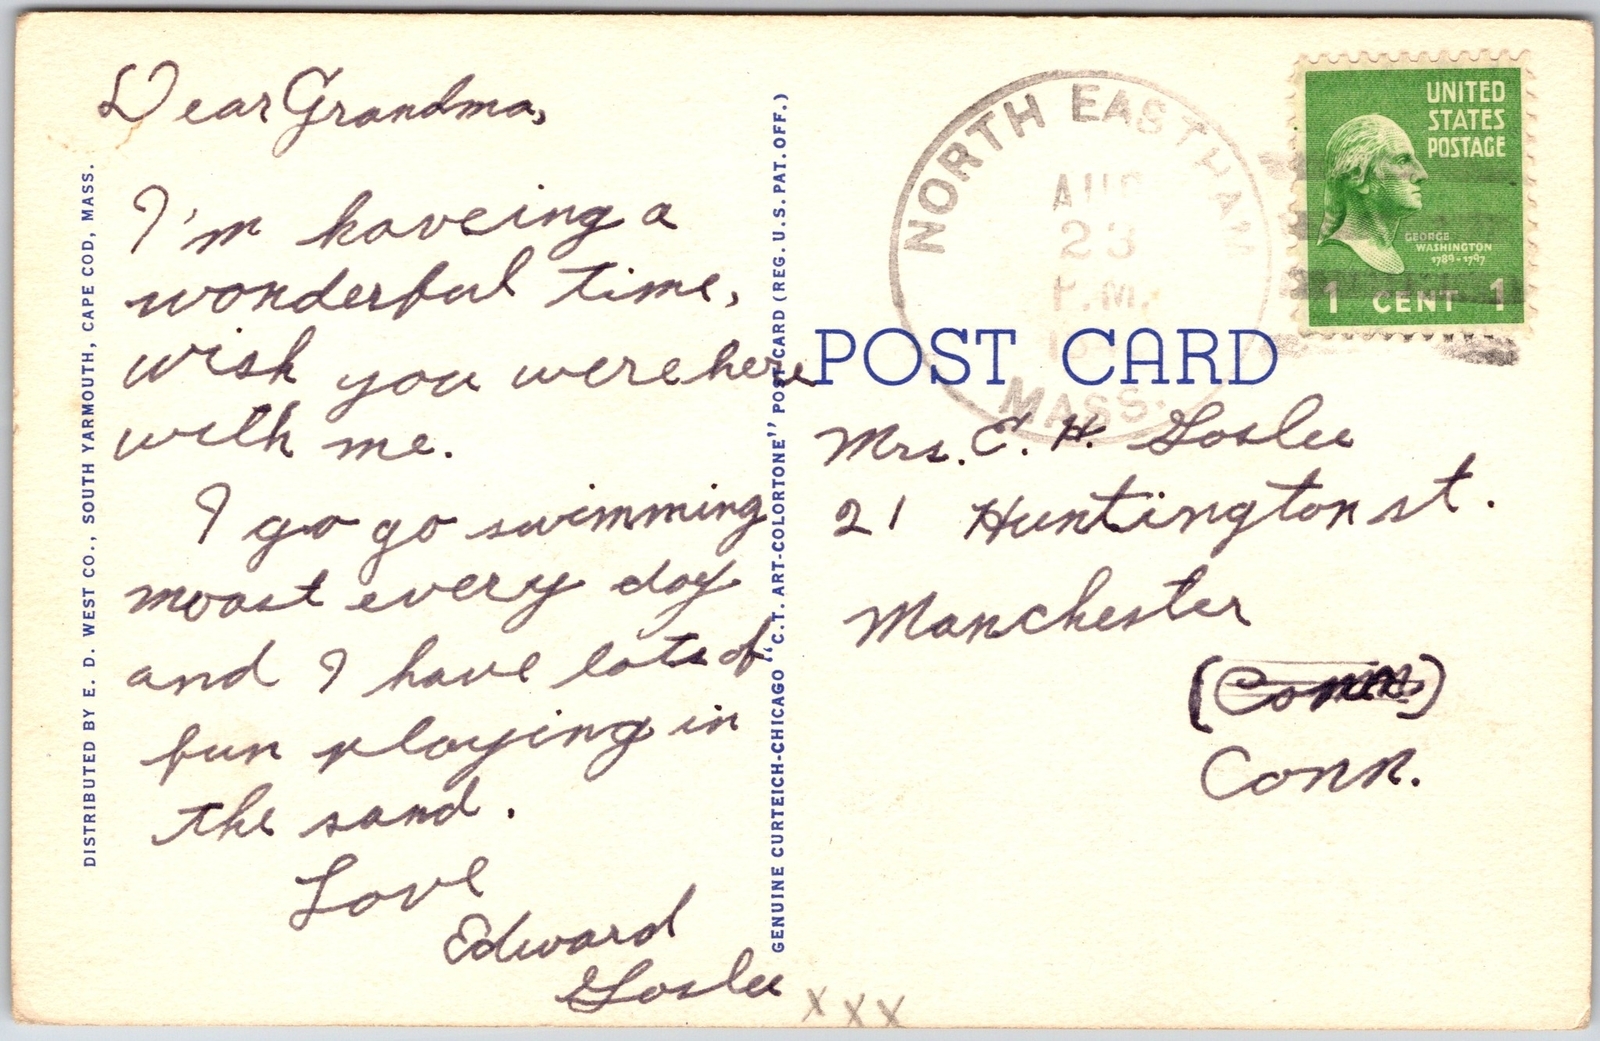 Dear Grandma,
I'm haveing a
wonderful time,
wish you were here
with me.
I go go swimming
moast every day
and I have lots of
fun playing in
the sand.
Love
Edward
Goslee
x x x
DISTRIBUTED BY E. D. WEST CO., SOUTH YARMOUTH, CAPE COD, MASS.
GENUINE CURTEICH-CHICAGO "C.T. ART-COLORTONE" POST CARD (REG. U.S. PAT. OFF.)
NORTH EASTHAM
AUG
23
P.M.
MASS.
UNITED
STATES
POSTAGE
GEORGE
WASHINGTON
1789-1797
1 CENT 1
POST CARD
Mrs. E. H. Goslee
21 Huntington st.
Manchester
(Conn)
Conn.